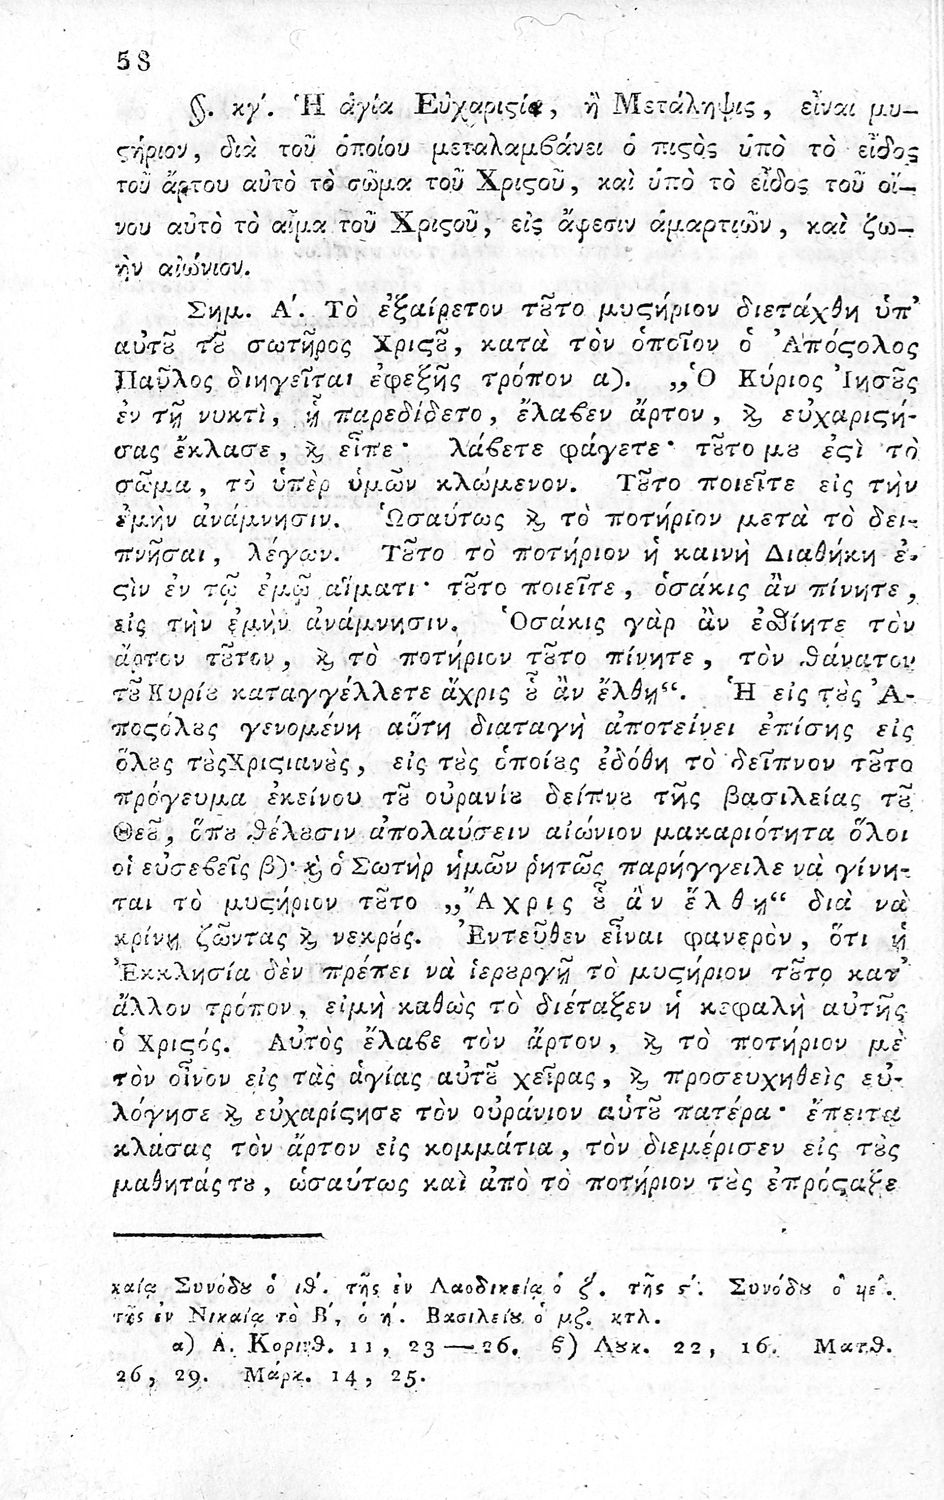 58
§. κγ'. Ἡ ἁγία Εὐχαριϛία, ἢ Μετάληψις, εἶναι μυ-
ϛήριον, διὰ τοῦ ὁποίου μεταλαμβάνει ὁ πιϛὸς ὑπὸ τὸ εἶδος
τοῦ ἄρτου αὐτὸ τὸ σῶμα τοῦ Χριϛοῦ, καὶ ὑπὸ τὸ εἶδος τοῦ οἴ-
νου αὐτὸ τὸ αἷμα τοῦ Χριϛοῦ, εἰς ἄφεσιν ἁμαρτιῶν, καὶ ζω-
ὴν αἰώνιον.
Σημ. Α'. Τὸ ἐξαίρετον τȣ͂το μυϛήριον διετάχθη ὑπ'
αὐτȣ͂ τȣ͂ σωτῆρος Χριϛȣ͂, κατὰ τὸν ὁποῖον ὁ Ἀπόϛολος
Παῦλος διηγεῖται ἐφεξῆς τρόπον α). „Ὁ Κύριος Ἰησȣ͂ς
ἐν τῇ νυκτὶ, ᾗ παρεδίδετο, ἔλαβεν ἄρτον, ϗ εὐχαριϛή-
σας ἔκλασε, ϗ εἶπε· λάβετε φάγετε· τȣ͂το μȣ ἐϛὶ τὸ
σῶμα, τὸ ὑπὲρ ὑμῶν κλώμενον. Τȣ͂το ποιεῖτε εἰς τὴν
ἐμὴν ἀνάμνησιν. Ὡσαύτως ϗ τὸ ποτήριον μετὰ τὸ δει-
πνῆσαι, λέγων. Τȣ͂το τὸ ποτήριον ἡ καινὴ Διαθήκη ἐ-
ϛὶν ἐν τῷ ἐμῷ αἵματι· τȣ͂το ποιεῖτε, ὁσάκις ἂν πίνητε,
εἰς τὴν ἐμὴν ἀνάμνησιν. Ὁσάκις γὰρ ἂν ἐσθίητε τὸν
ἄρτον τȣ͂τον, ϗ τὸ ποτήριον τȣ͂το πίνητε, τὸν θάνατον
τȣ͂ Κυρίȣ καταγγέλλετε ἄχρις ȣ̔͂ ἂν ἔλθῃ“. Ἡ εἰς τȣ̀ς Ἀ-
ποϛόλȣς γενομένη αὕτη διαταγὴ ἀποτείνει ἐπίσης εἰς
ὅλȣς τȣ̀ς Χριϛιανȣ̀ς, εἰς τȣ̀ς ὁποίȣς ἐδόθη τὸ δεῖπνον τȣ͂το
πρόγευμα ἐκείνου τȣ͂ οὐρανίȣ δείπνȣ τῆς βασιλείας τȣ͂
Θεȣ͂, ὅπȣ θέλȣσιν ἀπολαύσειν αἰώνιον μακαριότητα ὅλοι
οἱ εὐσεβεῖς β)· ϗ ὁ Σωτὴρ ἡμῶν ῥητῶς παρήγγειλε νὰ γίνη-
ται τὸ μυϛήριον τȣ͂το „Ἄχρις ȣ̔͂ ἂν ἔλθῃ“ διὰ νὰ
κρίνῃ ζῶντας ϗ νεκρȣ́ς. Ἐντεῦθεν εἶναι φανερὸν, ὅτι ἡ
Ἐκκλησία δὲν πρέπει νὰ ἱερȣργῇ τὸ μυϛήριον τȣ͂το κατ'
ἄλλον τρόπον, εἰμὴ καθὼς τὸ διέταξεν ἡ κεφαλὴ αὐτῆς
ὁ Χριϛός. Αὐτὸς ἔλαβε τὸν ἄρτον, ϗ τὸ ποτήριον μὲ
τὸν οἶνον εἰς τὰς ἁγίας αὐτȣ͂ χεῖρας, ϗ προσευχηθεὶς εὐ-
λόγησε ϗ εὐχαρίϛησε τὸν οὐράνιον αὑτȣ͂ πατέρα· ἔπειτα
κλάσας τὸν ἄρτον εἰς κομμάτια, τὸν διεμέρισεν εἰς τȣ̀ς
μαθητάς τȣ, ὡσαύτως καὶ ἀπὸ τὸ ποτήριον τȣ̀ς ἐπρόϛαξε
καίᾳ Συνόδȣ ὁ ιθ'. τῆς ἐν Λαοδικείᾳ ὁ ζ'. τῆς ϛ'. Συνόδȣ ὁ ϟε'.
τῆς ἐν Νικαίᾳ τὸ Β', ὁ η'. Βασιλείȣ ὁ μζ. κτλ.
α) Α. Κορινθ. 11, 23 — 26. β) Λȣκ. 22, 16. Ματθ.
26, 29. Μάρκ. 14, 25.